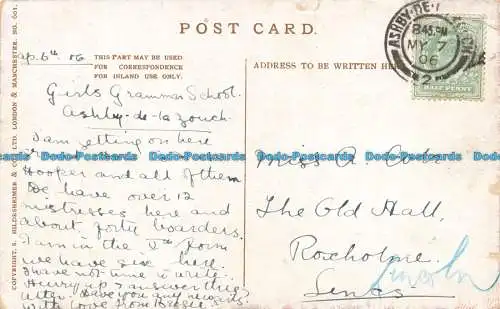 POST CARD.
THIS PART MAY BE USED
FOR CORRESPONDENCE
FOR INLAND USE ONLY.
ADDRESS TO BE WRITTEN HERE
ASHBY-DE-LA-ZOUCH
8.45PM
MY 7
06
2
HALFPENNY
COPYRIGHT, S. HILDESHEIMER & CO., LTD. LONDON & MANCHESTER. NO. 601.
6th 06
Girls Grammar School.
Ashby-de-la-zouch.
I am getting on here
Hooper and all of them
We have over 12
mistresses here and
about forty boarders.
I am in the Vth form
we have six here.
I have not time to write.
Hurry up & answer this
letter. Have you any new
With love from
Miss A.
The Old Hall,
Roxholme.
Lincs
Lincoln
Dodo-Postcards Dodo-Postcards Dodo-Postcards Dodo-Postcards